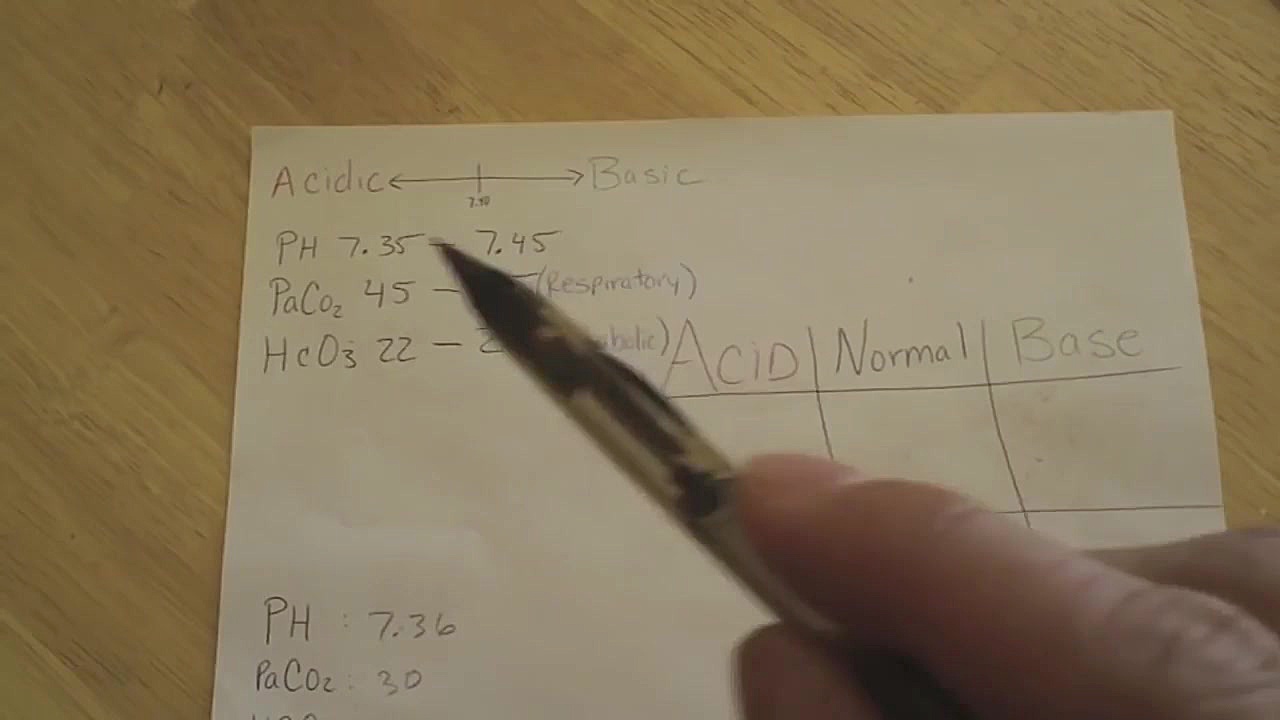 Acidic Basic
7.40
PH 7.35 - 7.45
PaCo2 45 - (Respiratory)
HcO3 22 - 2
ACiD Normal Base
PH : 7.36
PaCO2 : 30